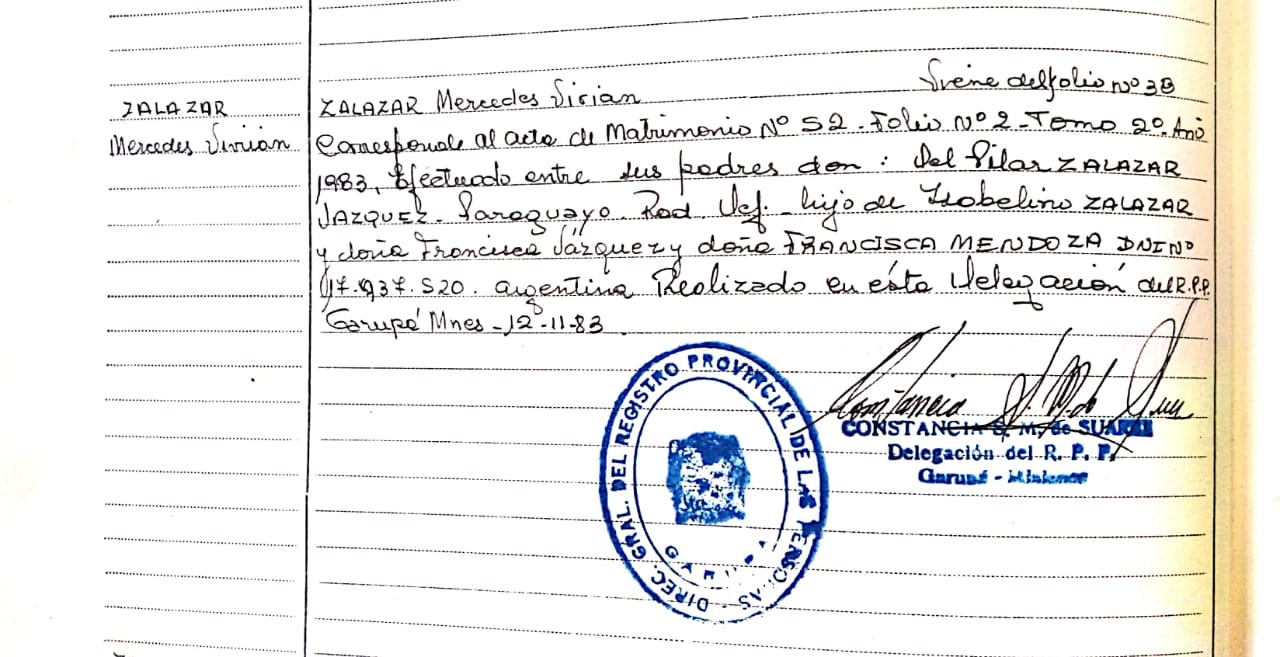 ZALAZAR
Mercedes Vivián
ZALAZAR Mercedes Vivian Viene del folio Nº 38
Corresponde al acta de Matrimonio Nº 52 - Folio Nº 2 - Tomo 2º. Año
1983, Efectuado entre sus padres don: Del Pilar ZALAZAR
VAZQUEZ - Paraguayo. Rad. Def. - hijo de Isabelino ZALAZAR
y doña Francisca Vázquez y doña FRANCISCA MENDOZA DNI Nº
17.937.520. argentina Realizado en ésta Delegación del R.P.P.
Garupá Mnes - 12-11-83
DIREC. GRAL. DEL REGISTRO PROVINCIAL DE LAS PERSONAS -
GARUPA
CONSTANCIA S. M. de SUAREZ
Delegación del R. P. P.
Garupá - Misiones